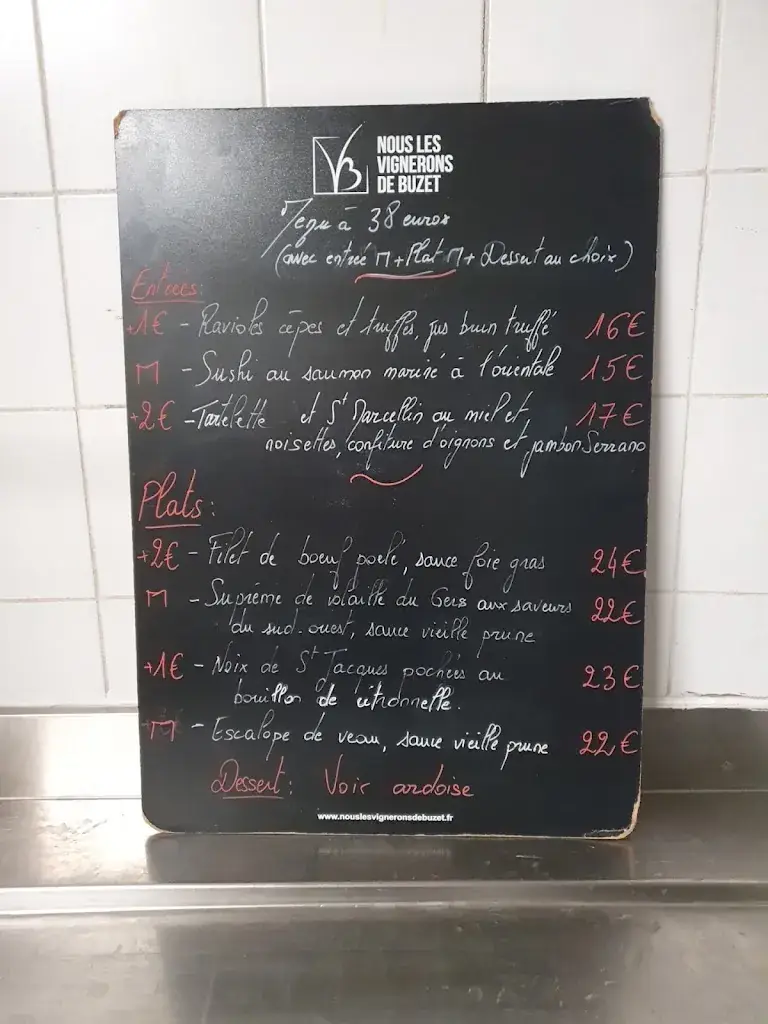 NOUS LES
VIGNERONS
DE BUZET
Menu à 38 euros
(avec entrée M + Plat M + Dessert au choix)
Entrées:
+1€ - Ravioles cèpes et truffes, jus brun truffé 16€
M - Sushi au saumon mariné à l'orientale 15€
+2€ - Tartelette et St Marcellin au miel et 17€
noisettes, confiture d'oignons et jambon Serrano
Plats:
+2€ - Filet de boeuf poelé, sauce foie gras 24€
M - Suprême de volaille du Gers aux saveurs 22€
du sud-ouest, sauce vieille prune
+1€ - Noix de St Jacques pochées au 23€
bouillon de citronnelle.
M - Escalope de veau, sauce vieille prune 22€
Dessert: Voir ardoise
www.nouslesvigneronsdebuzet.fr